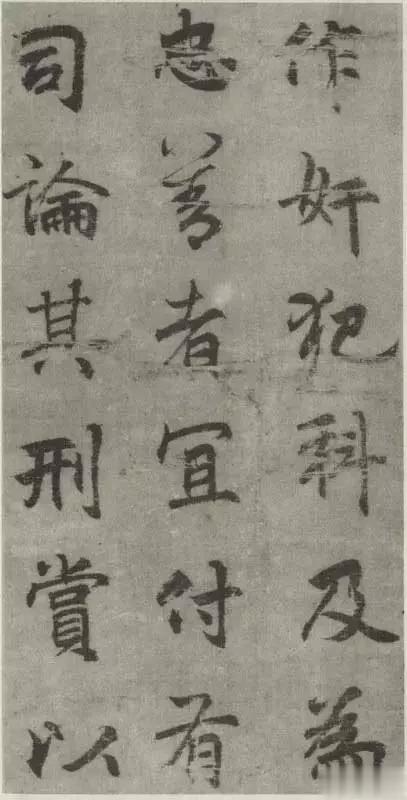 作奸犯科及為
忠善者宜付有
司論其刑賞以